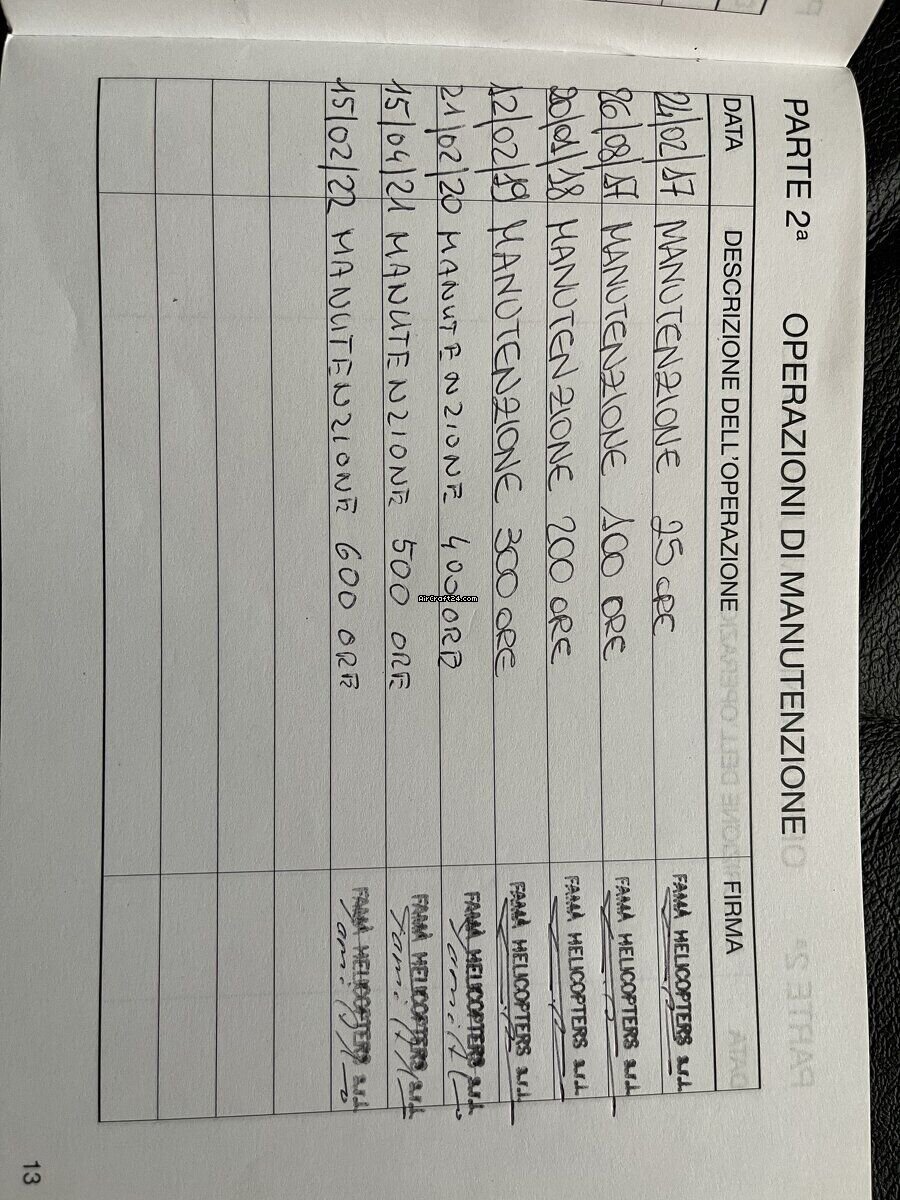 PARTE 2ª OPERAZIONI DI MANUTENZIONE
DATA DESCRIZIONE DELL'OPERAZIONE FIRMA
24/02/17 MANUTENZIONE 25 ORE FAMÀ HELICOPTERS s.r.l.
26/08/17 MANUTENZIONE 100 ORE FAMÀ HELICOPTERS s.r.l.
20/01/18 MANUTENZIONE 200 ORE FAMÀ HELICOPTERS s.r.l.
12/02/19 MANUTENZIONE 300 ORE FAMÀ HELICOPTERS s.r.l.
21/02/20 MANUTENZIONE 400 ORE FAMÀ HELICOPTERS s.r.l.
15/04/21 MANUTENZIONE 500 ORE FAMÀ HELICOPTERS s.r.l.
15/02/22 MANUTENZIONE 600 ORE FAMÀ HELICOPTERS s.r.l.
13
AirCraft24.com